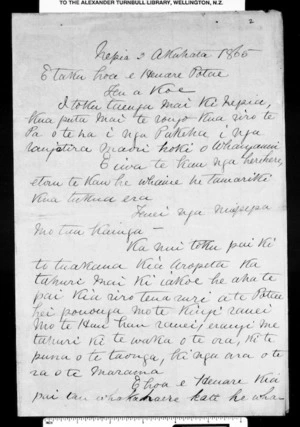 TO THE ALEXANDER TURNBULL LIBRARY, WELLINGTON, N.Z.
2
Nepia 2 Akuhata 1865
E taku hoa e Henare Potae
Tena Koe
I toku taenga mai ki Nepia,
kua puta mai te rongo kua riro te
Pa o te na i nga Pakeha i nga
rangatira Maori hoki o
E iwa te kau nga herehere,
etoru te kau he wahine he tamariki
kua tukua era
nga
mo tou kainga —
Ka nui toku pai ki
to tuakana kia Aropeta ka
tahuri mai ki akoe he aha te
pai kia riro tena uri a te Potae
hei pononga mo te Kingi ranei
mo te Hau hau ranei, erangi me
tahuri ki te waka o te ora, ki te
puna o te taonga, ki nga ara o te
ra o te Marama
E hoa e Henare kia
pai tau whakahaere kati he wha-